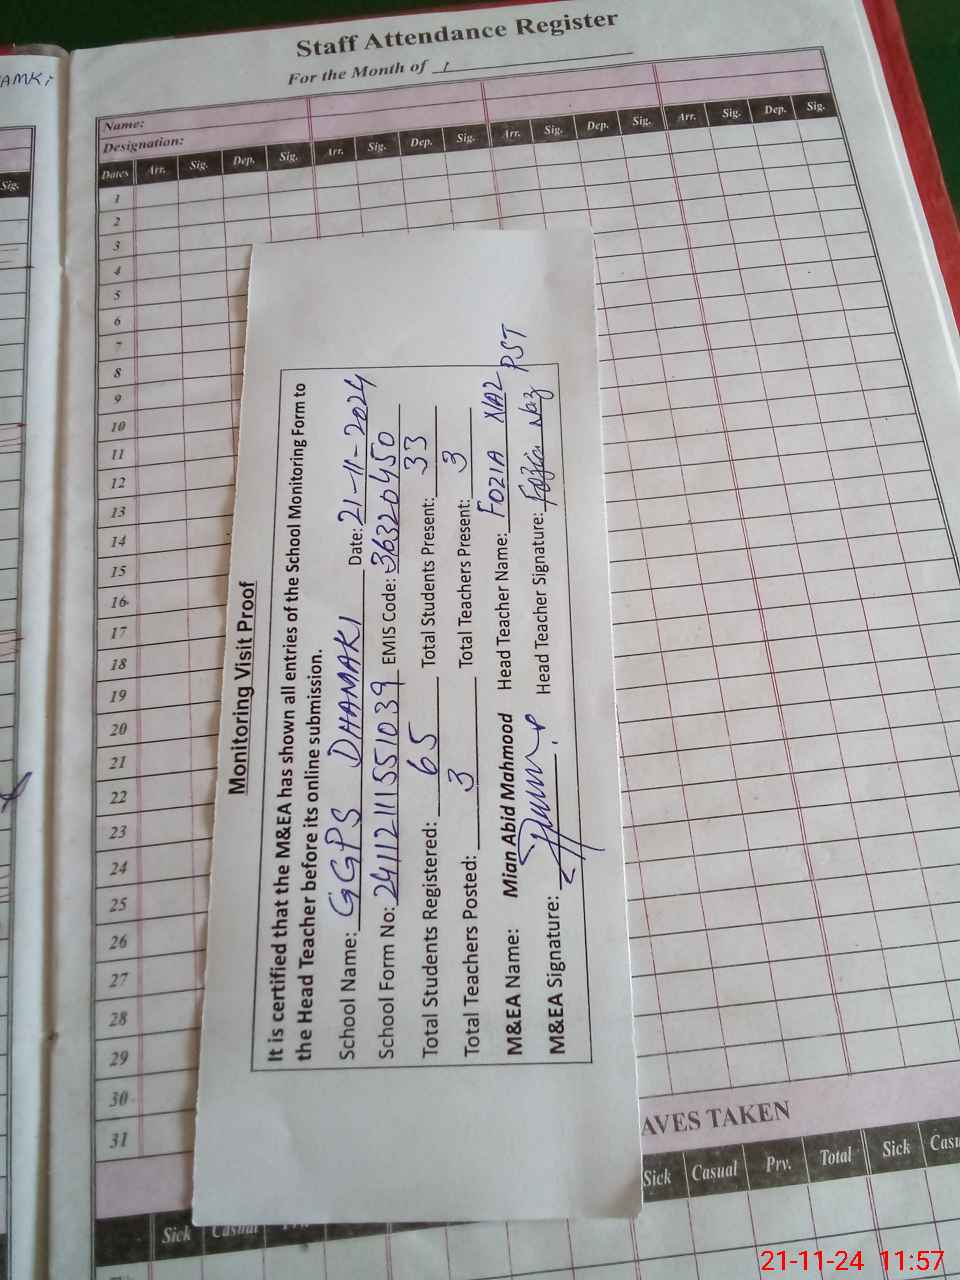 AMKI
Sig.
Staff Attendance Register
For the Month of
Name:
Designation:
Dates Arr. Sig. Dep. Sig. Arr. Sig. Dep. Sig. Arr. Sig. Dep. Sig. Arr. Sig. Dep. Sig.
1
2
3
4
5
6
7
8
9
10
11
12
13
14
15
16
17
18
19
20
21
22
23
24
25
26
27
28
29
30
31
Monitoring Visit Proof
It is certified that the M&EA has shown all entries of the School Monitoring Form to
the Head Teacher before its online submission.
School Name: GGPS DHAMAKI Date: 21-11-2024
School Form No: 24112111551039 EMIS Code: 36320450
Total Students Registered: 65 Total Students Present: 33
Total Teachers Posted: 3 Total Teachers Present: 3
M&EA Name: Mian Abid Mahmood Head Teacher Name: FOZIA NAZ PST
M&EA Signature: Head Teacher Signature: Fozia Naz
AVES TAKEN
Sick Casual Sick Casual Prv. Total Sick Casu
21-11-24 11:57